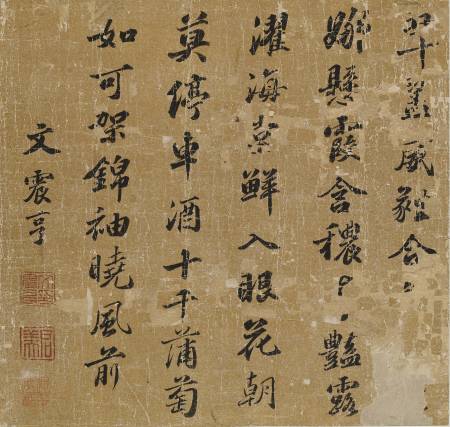 風合
懸霞含穠艷露
濯海棠鮮入眼花朝
莫停車酒十千蒲萄
如可架錦袖曉風前
文震亨